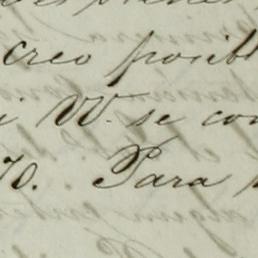 creo posibl
i W. se con
70. Para